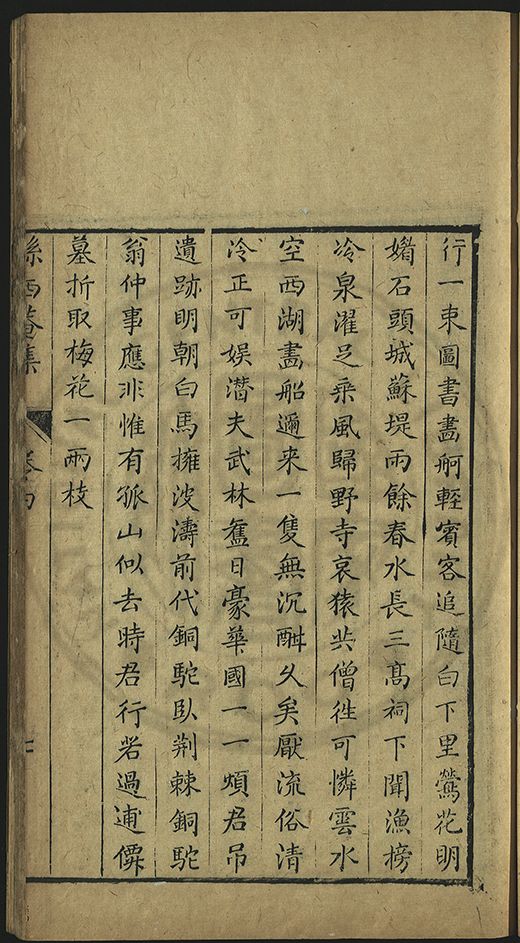 行一束圖書畵舸輕賓客追隨白下里鶯花明
媚石頭城蘇堤雨餘春水長三髙祠下聞漁榜
冷泉濯足乘風歸野寺哀猿共僧徃可憐雲水
空西湖畵船邇来一隻無沉酣久矣厭流俗清
冷正可娱潜夫武林舊日豪華國一一煩君吊
遺跡明朝白馬擁波濤前代銅駝臥荆棘銅駝
翁仲事應非惟有孤山似去時君行若過逋僊
墓折取梅花一兩枝
孫西菴集 卷四 七